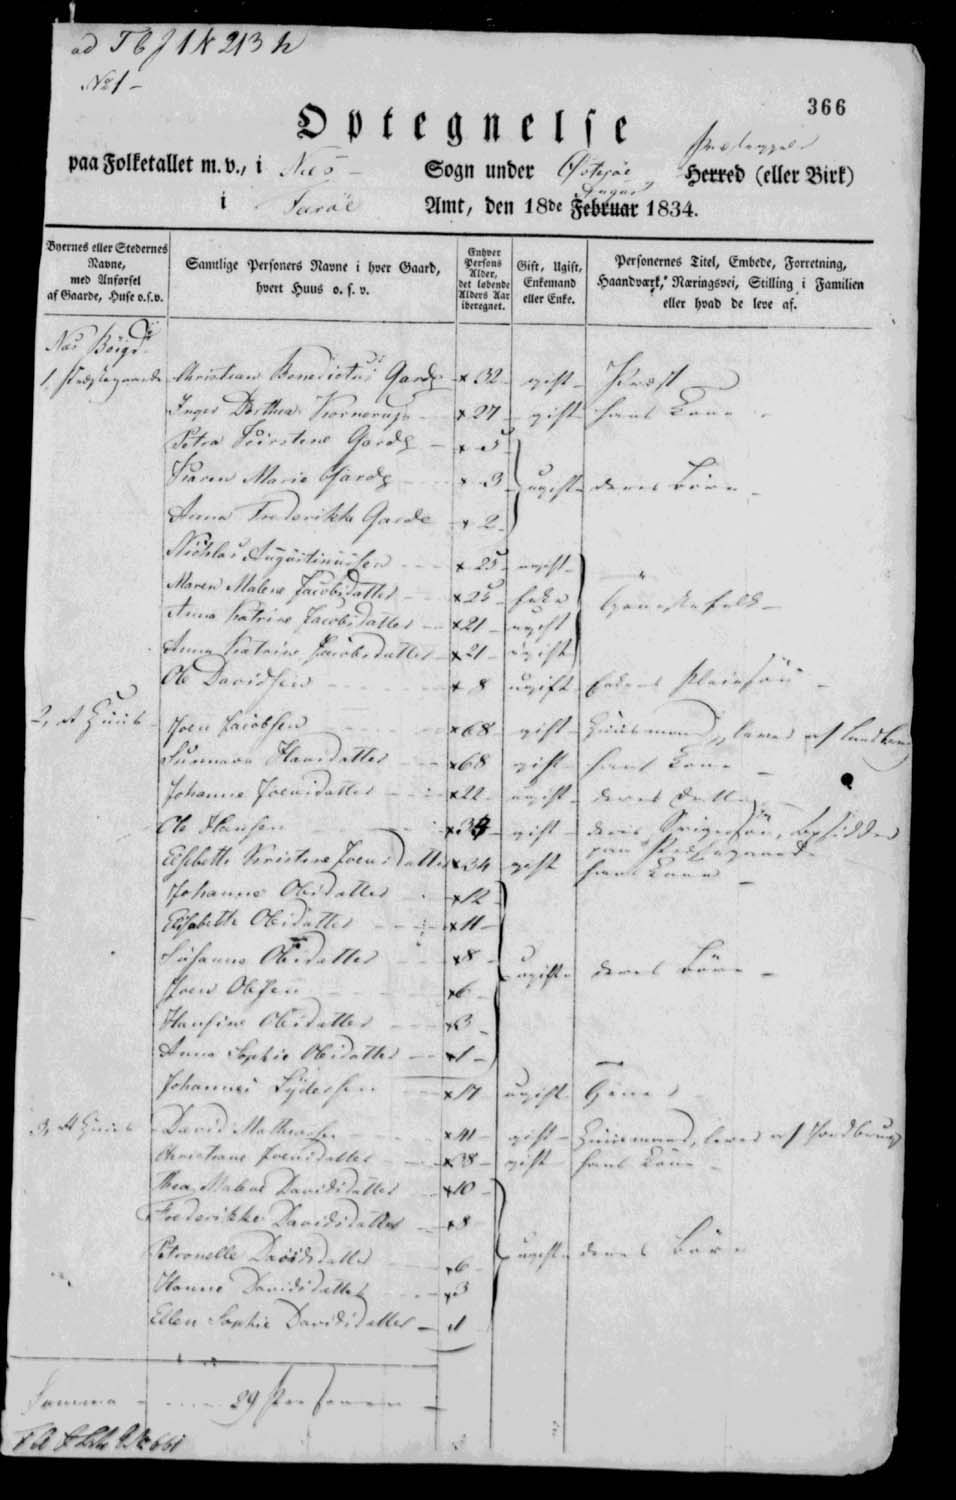 ad T C J 1 N 213 h
No 1 -
366
Optegnelse
paa Folketallet m. v., i Næs Sogn under Østerøe Herred (eller Birk)
i Færöe Amt, den 18de Februar 1834.
Byernes eller Stedernes Navne, med Anførsel af Gaarde, Huse o.s.v.
Samtlige Personers Navne i hver Gaard, hvert Huus o. s. v.
Enhver Persons Alder, det løbende Alders Aar iberegnet.
Gift, Ugift, Enkemand eller Enke.
Personernes Titel, Embede, Forretning, Haandværk, Næringsvei, Stilling i Familien eller hvad de leve af.
Næs Böigd
1, Præstegaarden Christian Benedictus Garde x 32 gift Præst
Inger Dorthea Kornerup x 27 gift hans Kone
Petra Kirstine Garde x 5
Karen Marie Garde x 3 ugift deres Börn
Anna Frederikke Garde x 2
Nicklas Augustinussen x 25 ugift
Maren Malene Jacobsdatter x 25 Enke
Anna Katrine Jacobsdatter x 21 ugift Tjenestefolk
Anna Katrine Jacobsdatter x 21 ugift
Ole Davidsen x 8 ugift Enkens Pleiesön
2, et Huus Joen Jacobsen x 68 gift Huusmand, lever af
Sunneva Hansdatter x 68 gift hans Kone
Johanne Joensdatter x 22 ugift deres Datter
Ole Hansen x 34 gift deres Svigersön,
paa Præstegaarden
Elsebeth Kristine Joensdatter x 34 gift hans Kone
Johanne Olesdatter x 12
Elisabeth Olesdatter x 11
Susanne Olesdatter x 8
ugift deres Börn
Joen Olesen x 6
Hansine Olesdatter x 3
Anna Sophie Olesdatter x 1
Johannes x 17 ugift
3, et Huus David Mathiasen x 41 gift Huusmand, lever af Jordbrug
Christiane Joensdatter x 38 gift hans Kone
Thea Malene Davidsdatter x 10
Frederikke Davidsdatter x 8
ugift deres Börn
Petronelle Davidsdatter x 6
Hanne Davidsdatter x 3
Ellen Sophie Davidsdatter x 1
Summa 29 Personer